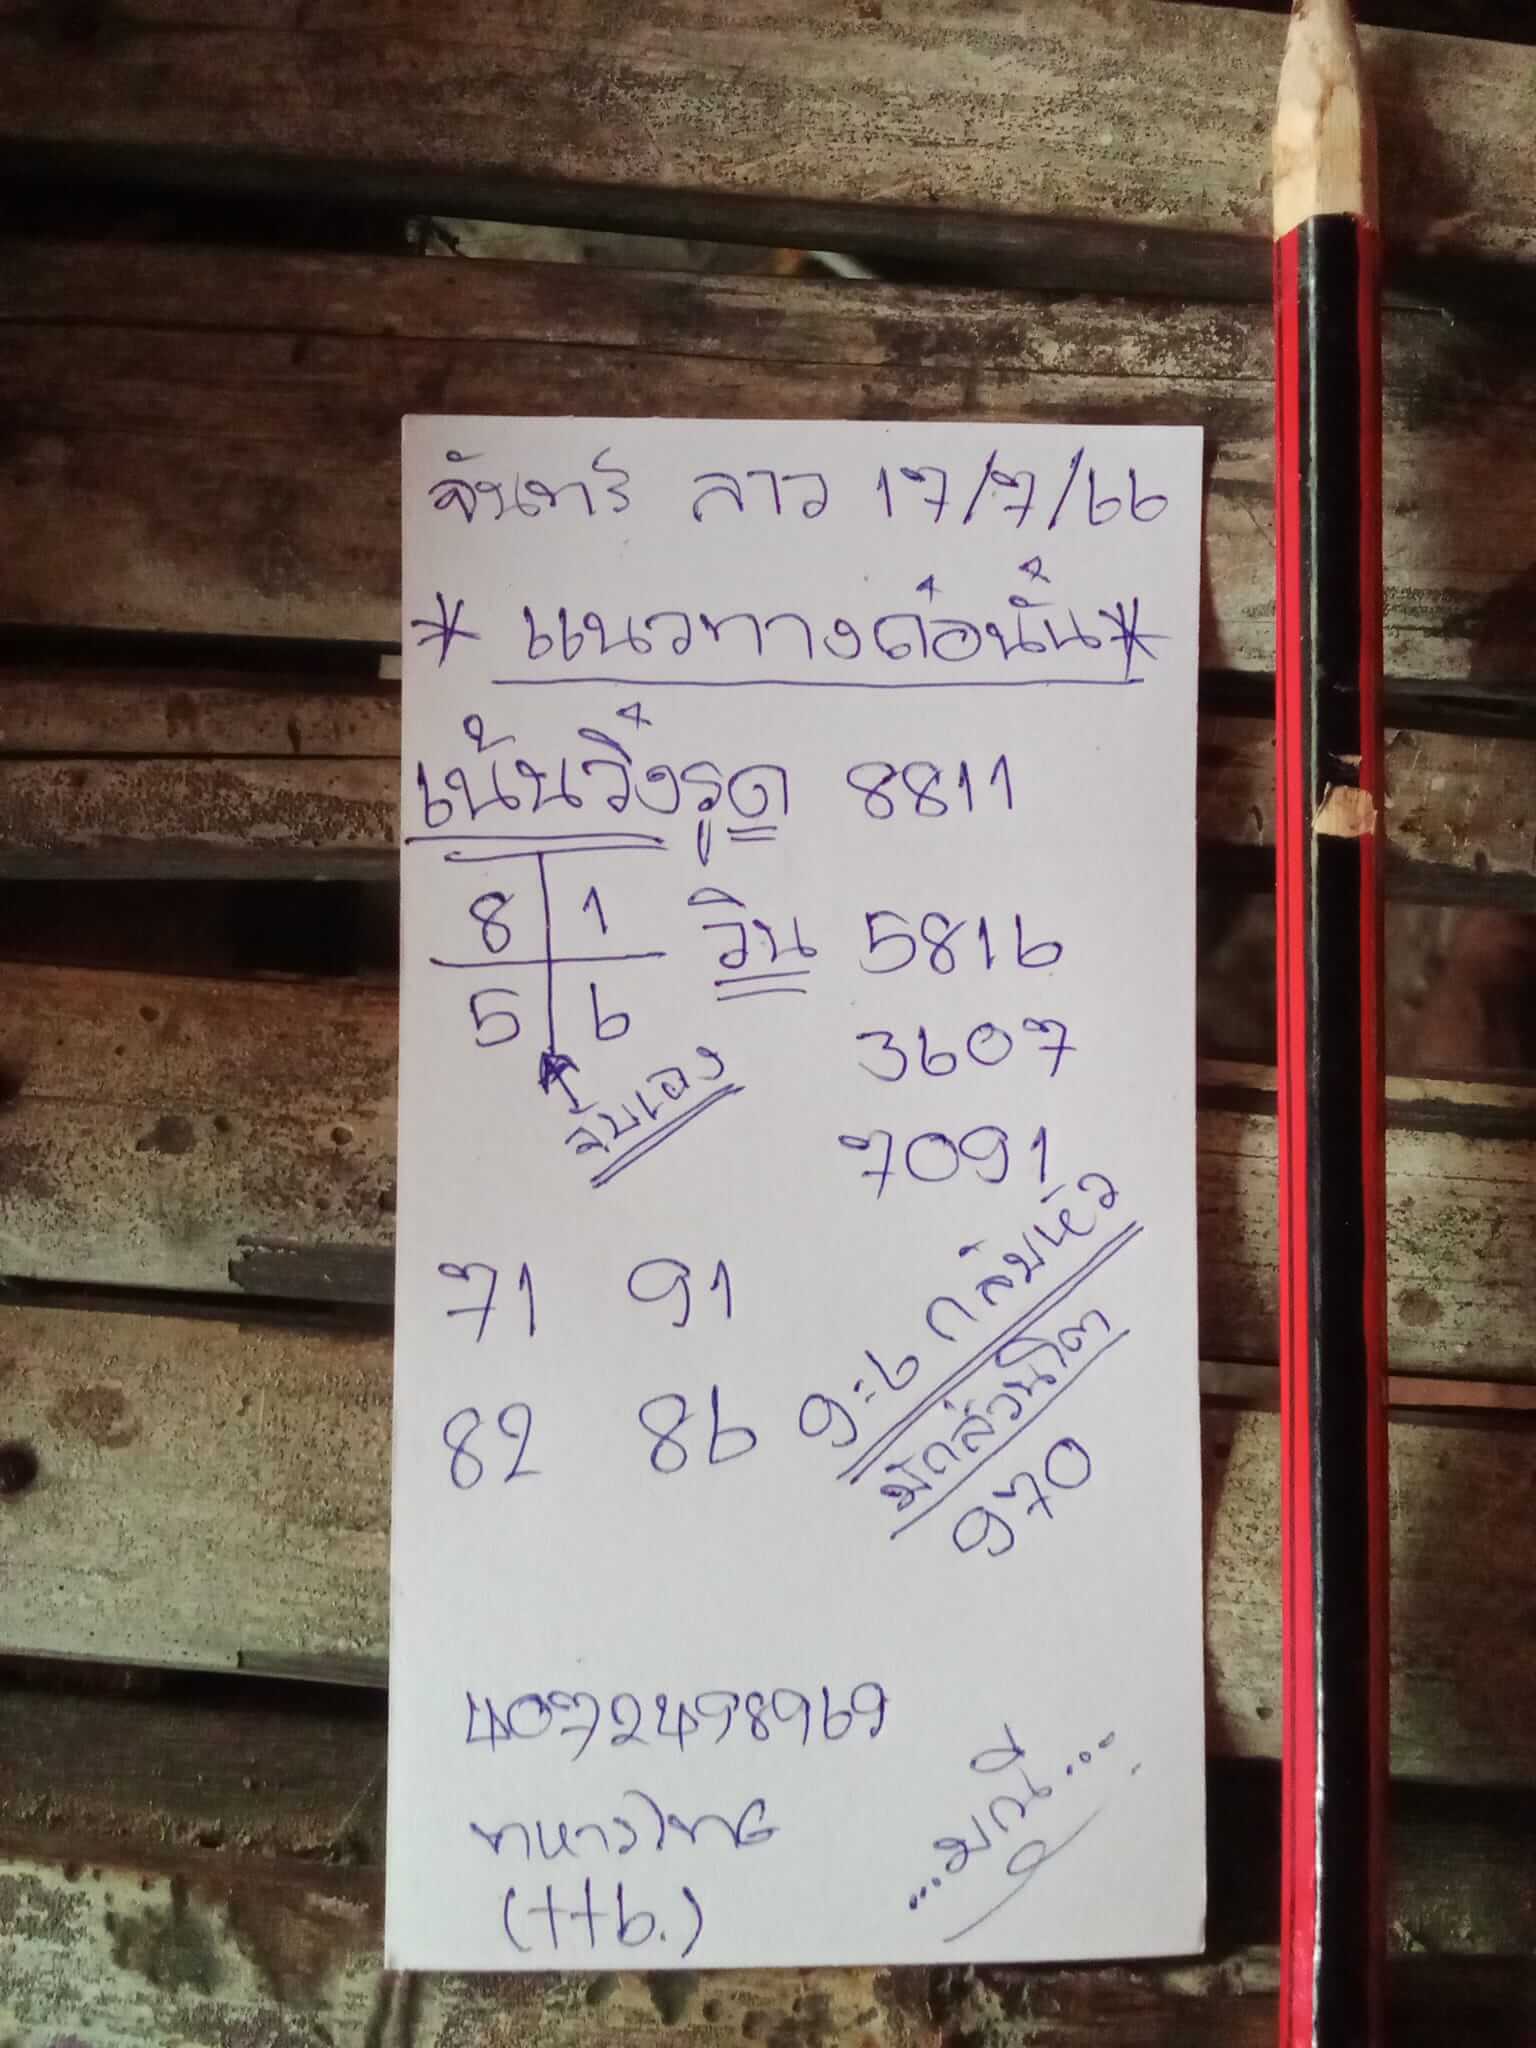 จันทร์ ลาว 17/7/66
* แนวทางต่อนั้น *
เน้นวิ่งรูด 8811
8 1 วิน 5816
5 6
3607
จับเอง
7091
71 91
9=6 กลับหัว
82 86
มัดส่วนโต
970
4072498969
ทหารไทย
(ttb.)
...มณี...